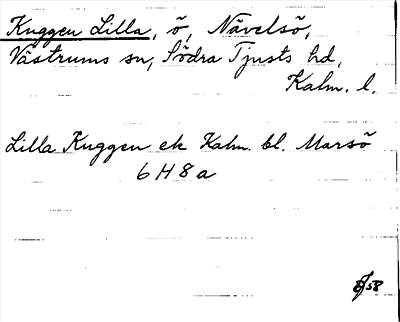 Kuggen Lilla, ö, Nävelsö,
Västrums sn, Södra Tjusts hd,
Kalm. l.
Lilla Kuggen ek Kalm. bl. Marsö
6 H 8 a